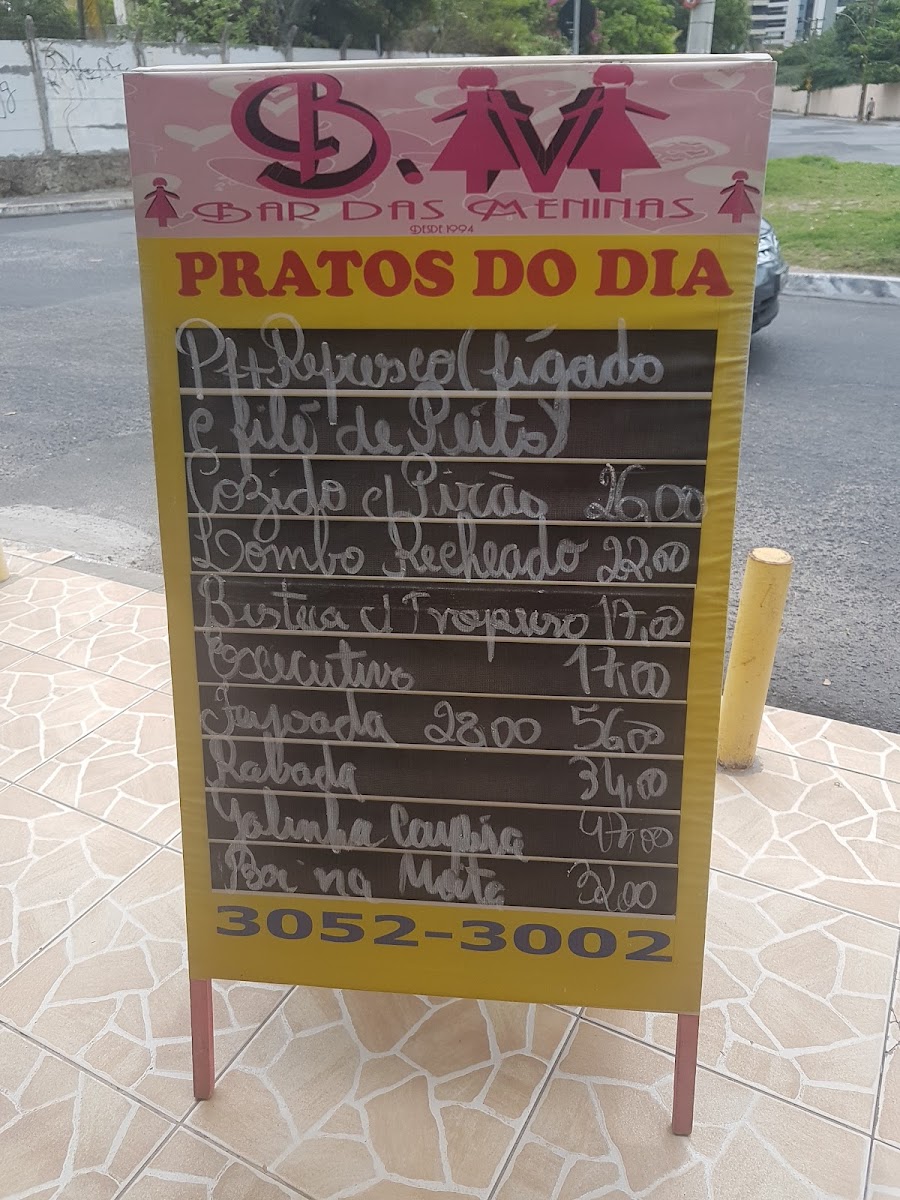 B.M
BAR DAS MENINAS
DESDE 1994
PRATOS DO DIA
Pf+Refresco (fígado
e filé de Peito)
Cozido c/ Pirão 26,00
Lombo Recheado 22,00
Bisteca c/ Tropeiro 17,00
Executivo 17,00
Feijoada 28,00 56,00
Rabada 34,00
Galinha Caupira 47,00
Boi na Moita 32,00
3052-3002